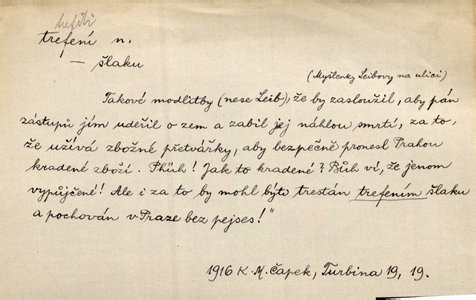 trefiti
trefení n.
— šlaku
(Myšlenky Leibovy na ulici)
Takové modlitby (nese Leib), že by zasloužil, aby pán
zástupů jím udeřil o zem a zabil jej náhlou smrtí, za to,
že užívá zbožné přetvářky, aby bezpečně pronesl Prahou
kradené zboží. Phüh! Jak to kradené? Bůh ví, že jenom
vypůjčené! Ale i za to by mohl býti trestán trefením šlaku
a pochován v Praze bez pejses!"
1916 K. M. Čapek, Turbina 19, 19.